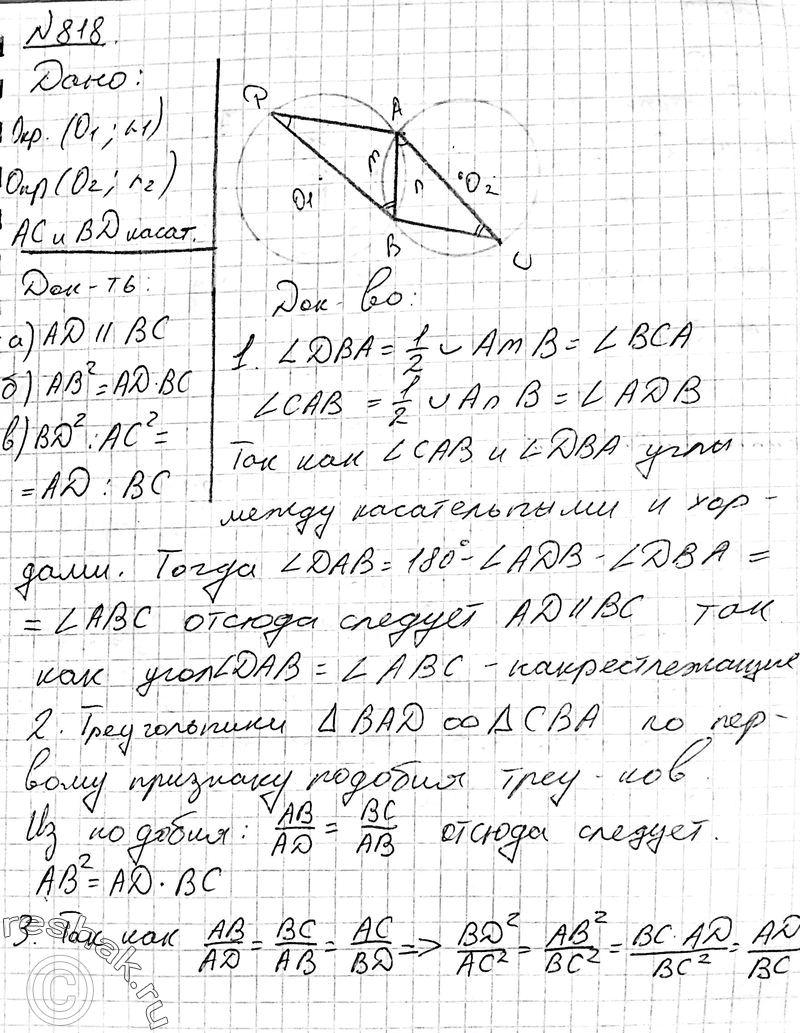 №818.
Дано:
Окр. (O1; r1)
Окр (O2; r2)
AC и BD касат.
Док-ть:
а) AD || BC
б) AB² = AD·BC
в) BD² : AC² =
= AD : BC
D
A
m
n
O1
O2
B
C
Док-во:
1. ∠DBA = 1/2 ∪ AmB = ∠BCA
∠CAB = 1/2 ∪ AnB = ∠ADB
Так как ∠CAB и ∠DBA углы
между касательными и хор-
дами. Тогда ∠DAB = 180° - ∠ADB - ∠DBA =
= ∠ABC отсюда следует AD || BC так
как угол ∠DAB = ∠ABC - накрестлежащие
2. Треугольники △BAD ∞ △CBA по пер-
вому признаку подобия треу-ков.
Из подобия: AB/AD = BC/AB отсюда следует.
AB² = AD·BC
3. Так как AB/AD = BC/AB = AC/BD => BD²/AC² = AB²/BC² = BC·AD/BC² = AD/BC
© reshak.ru